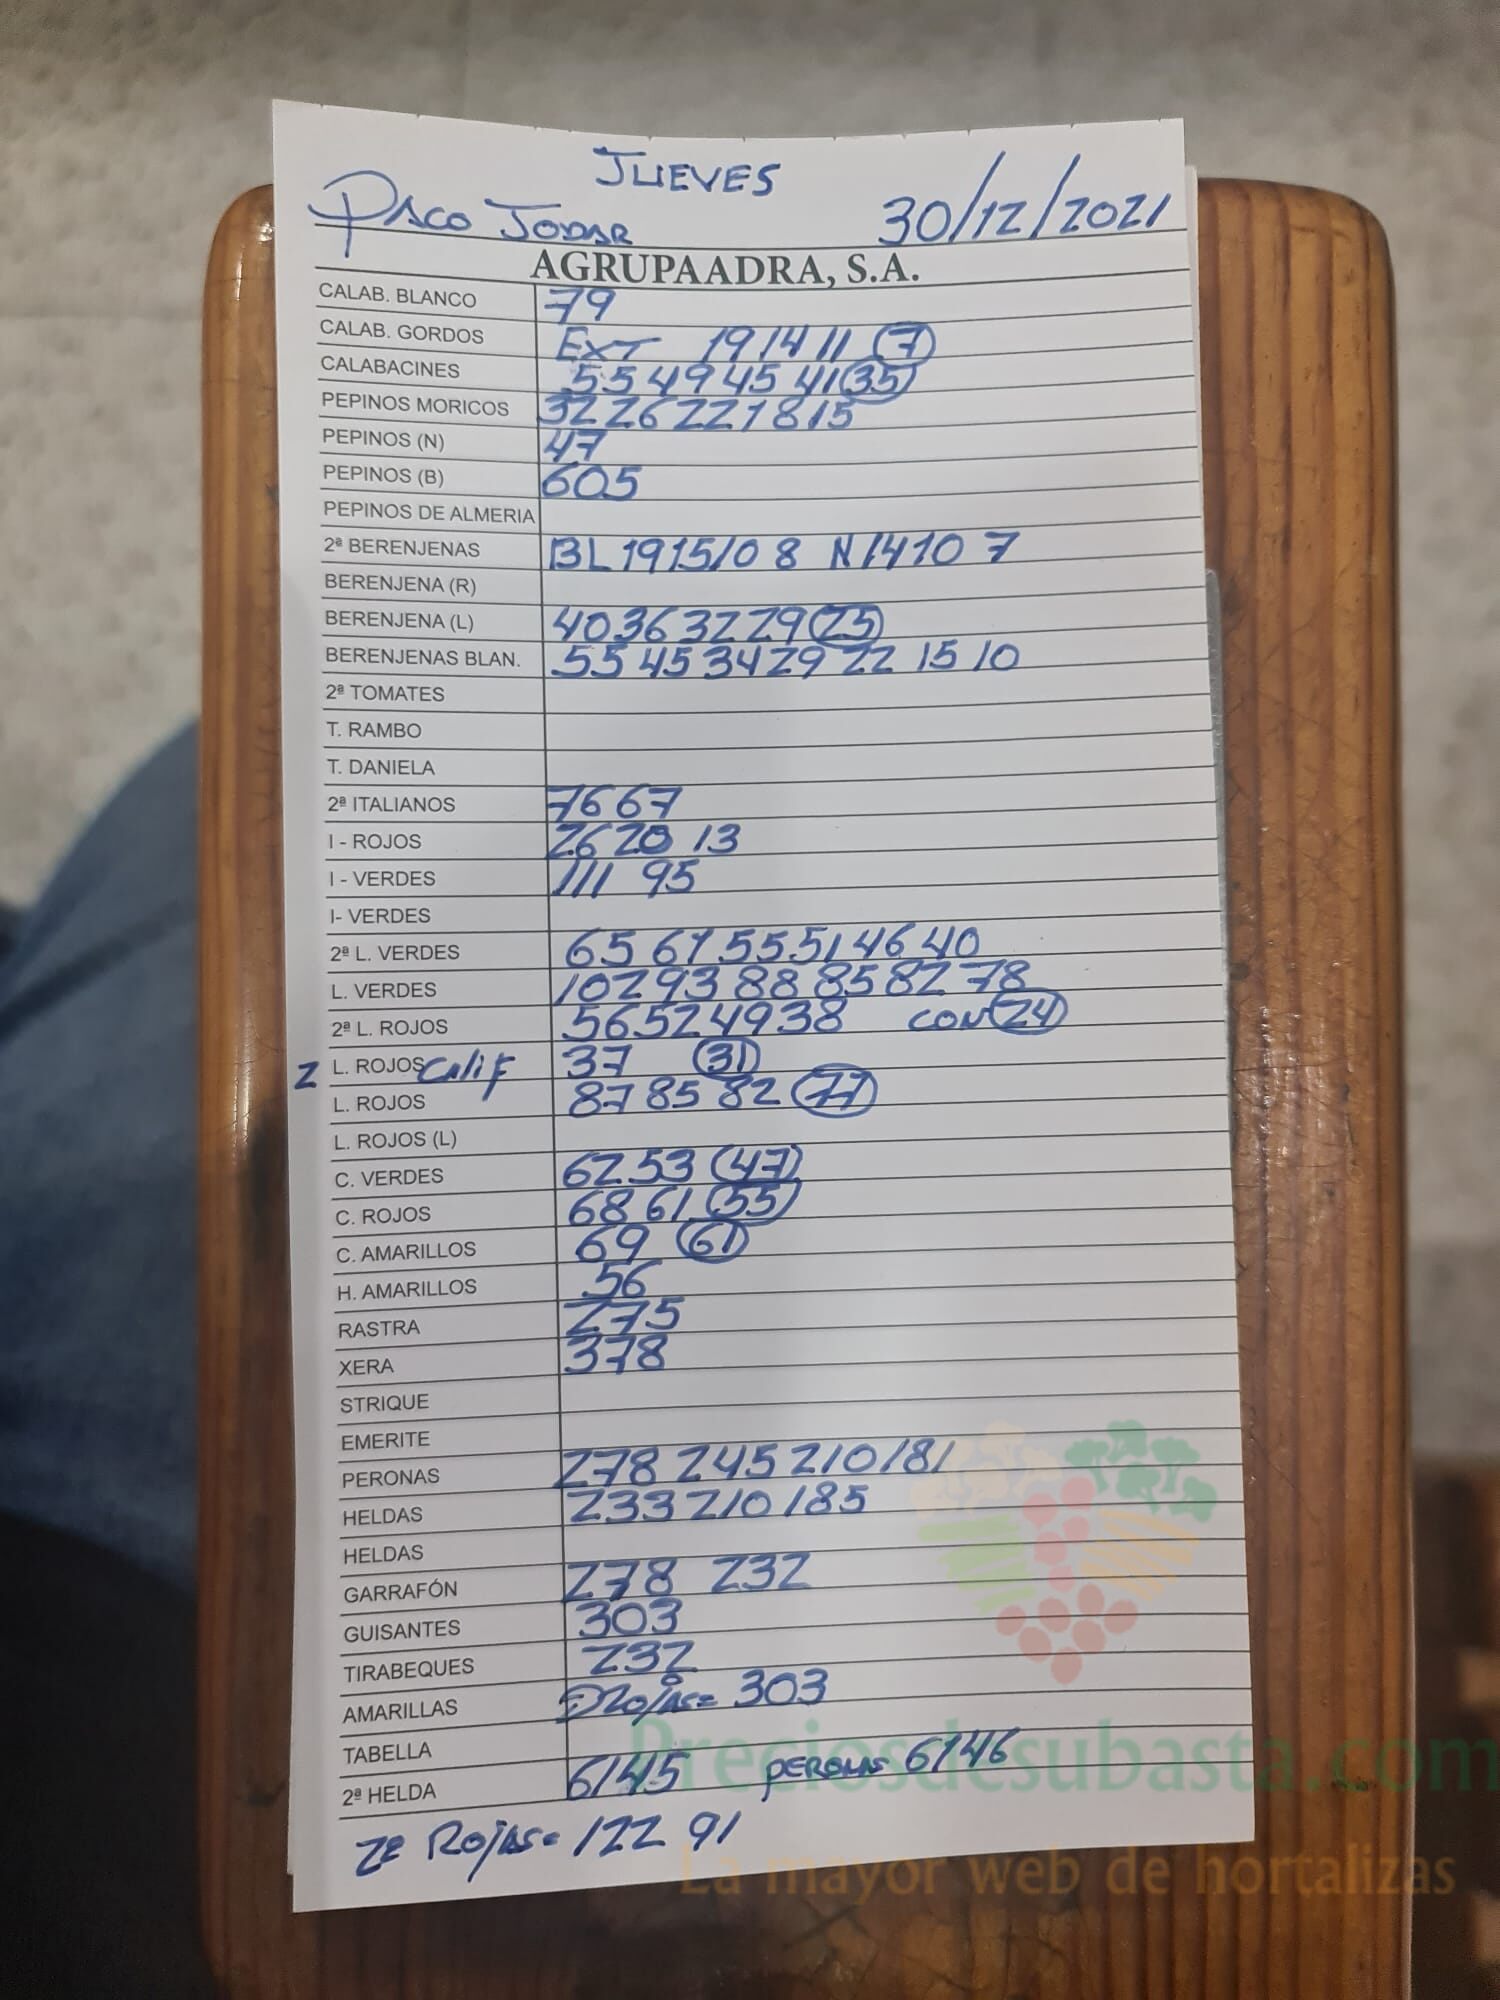 JUEVES
PACO JODAR 30/12/2021
AGRUPAADRA, S.A.
CALAB. BLANCO 79
CALAB. GORDOS EXT 19 14 11 (7)
CALABACINES 55 49 45 41 (35)
PEPINOS MORICOS 32 26 22 18 15
PEPINOS (N) 47
PEPINOS (B) 605
PEPINOS DE ALMERIA
2ª BERENJENAS BL 19 15 10 8 N 14 10 7
BERENJENA (R)
BERENJENA (L) 40 36 32 29 (25)
BERENJENAS BLAN. 55 45 34 29 22 15 10
2ª TOMATES
T. RAMBO
T. DANIELA
2ª ITALIANOS 76 67
I - ROJOS 26 20 13
I - VERDES 111 95
I- VERDES
2ª L. VERDES 65 61 55 51 46 40
L. VERDES 102 93 88 85 82 78
2ª L. ROJOS 56 52 49 38 CON (24)
2 L. ROJOS Calif 37 (31)
L. ROJOS 87 85 82 (77)
L. ROJOS (L)
C. VERDES 62 53 (47)
C. ROJOS 68 61 (55)
C. AMARILLOS 69 (61)
H. AMARILLOS 56
RASTRA 275
XERA 378
STRIQUE
EMERITE
PERONAS 278 245 210 181
HELDAS 233 210 185
HELDAS
GARRAFÓN 278 232
GUISANTES 303
TIRABEQUES 232
AMARILLAS Rojas= 303
TABELLA
2ª HELDA 61 45 PERONAS 61 46
2ª Rojas= 122 91
Preciosdesubasta.com
La mayor web de hortalizas